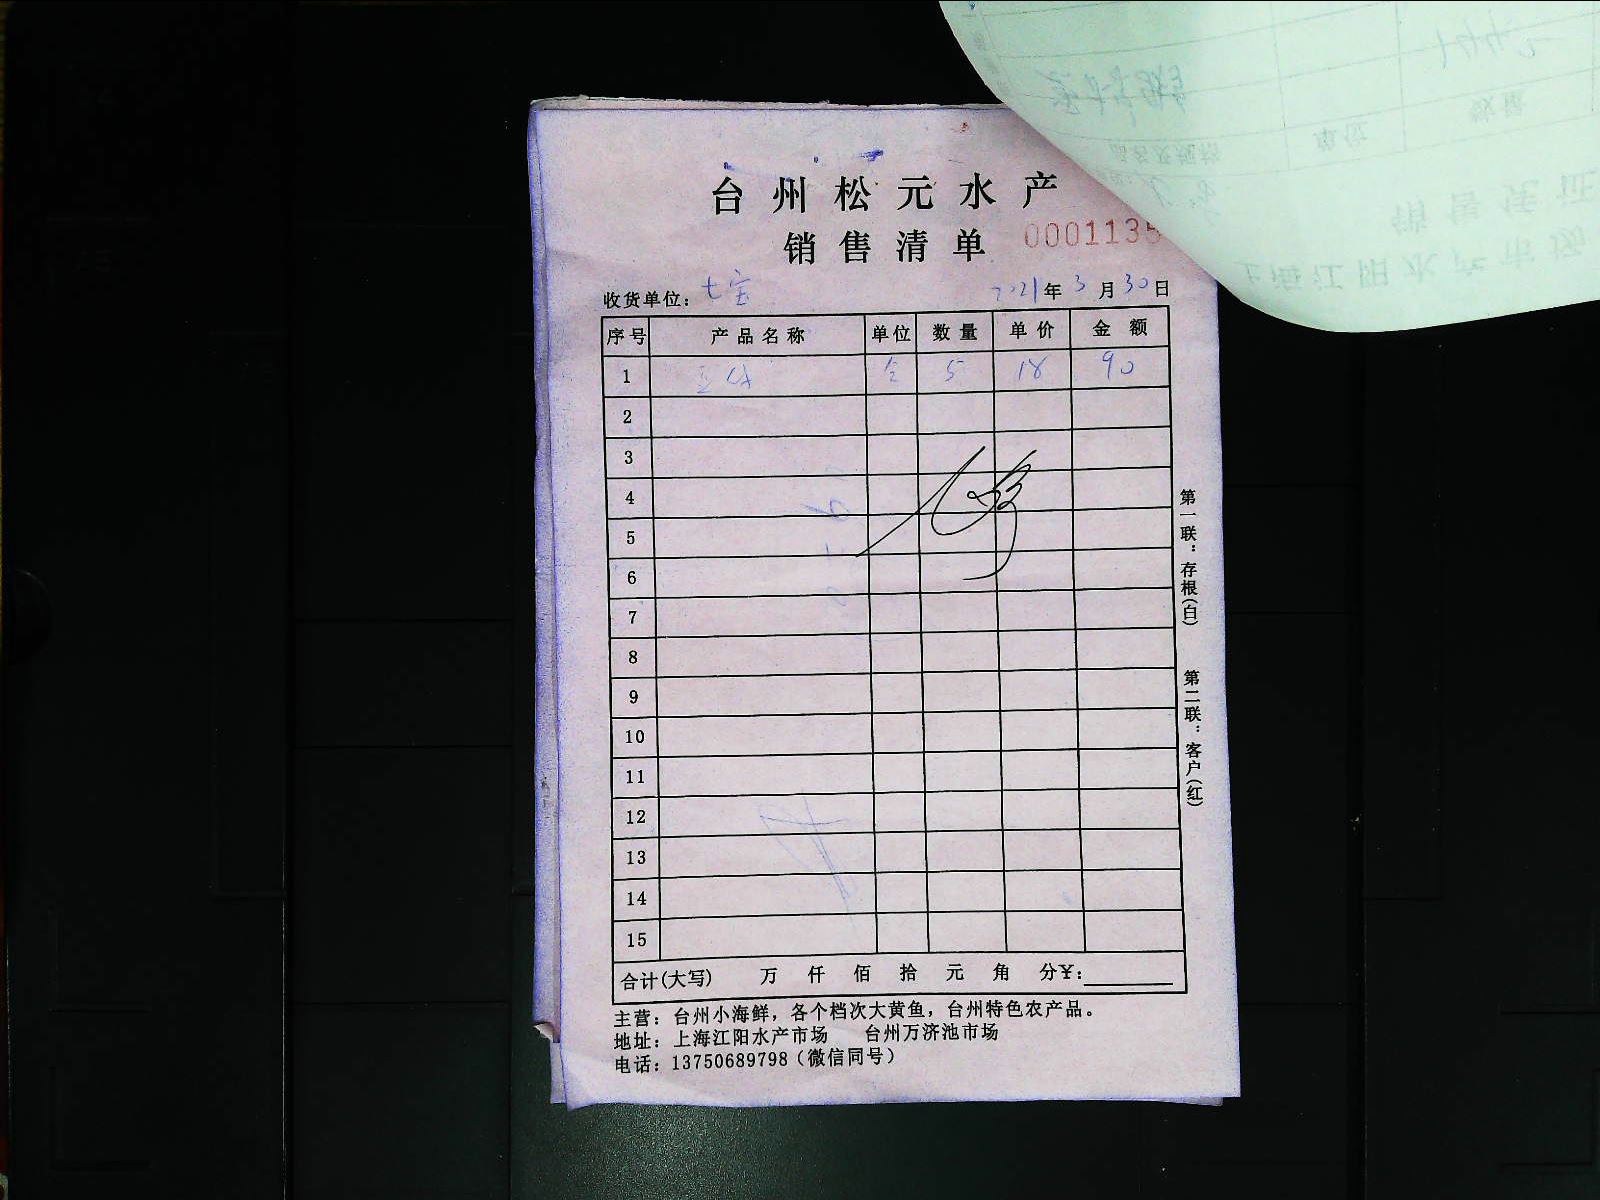 台州松元水产
销售清单 000113
收货单位: 七宝 2021年3月30日
序号 产品名称 单位 数量 单价 金额
1 5 18 90
2
3
4
5
6
7
8
9
10
11
12
13
14
15
合计(大写) 万 仟 佰 拾 元 角 分¥:
主营: 台州小海鲜，各个档次大黄鱼，台州特色农产品。
地址: 上海江阳水产市场 台州万济池市场
电话: 13750689798（微信同号）
第一联: 存根(白)
第二联: 客户(红)
上海江阳水产市场
销售凭证
品名及规格 单位 数量